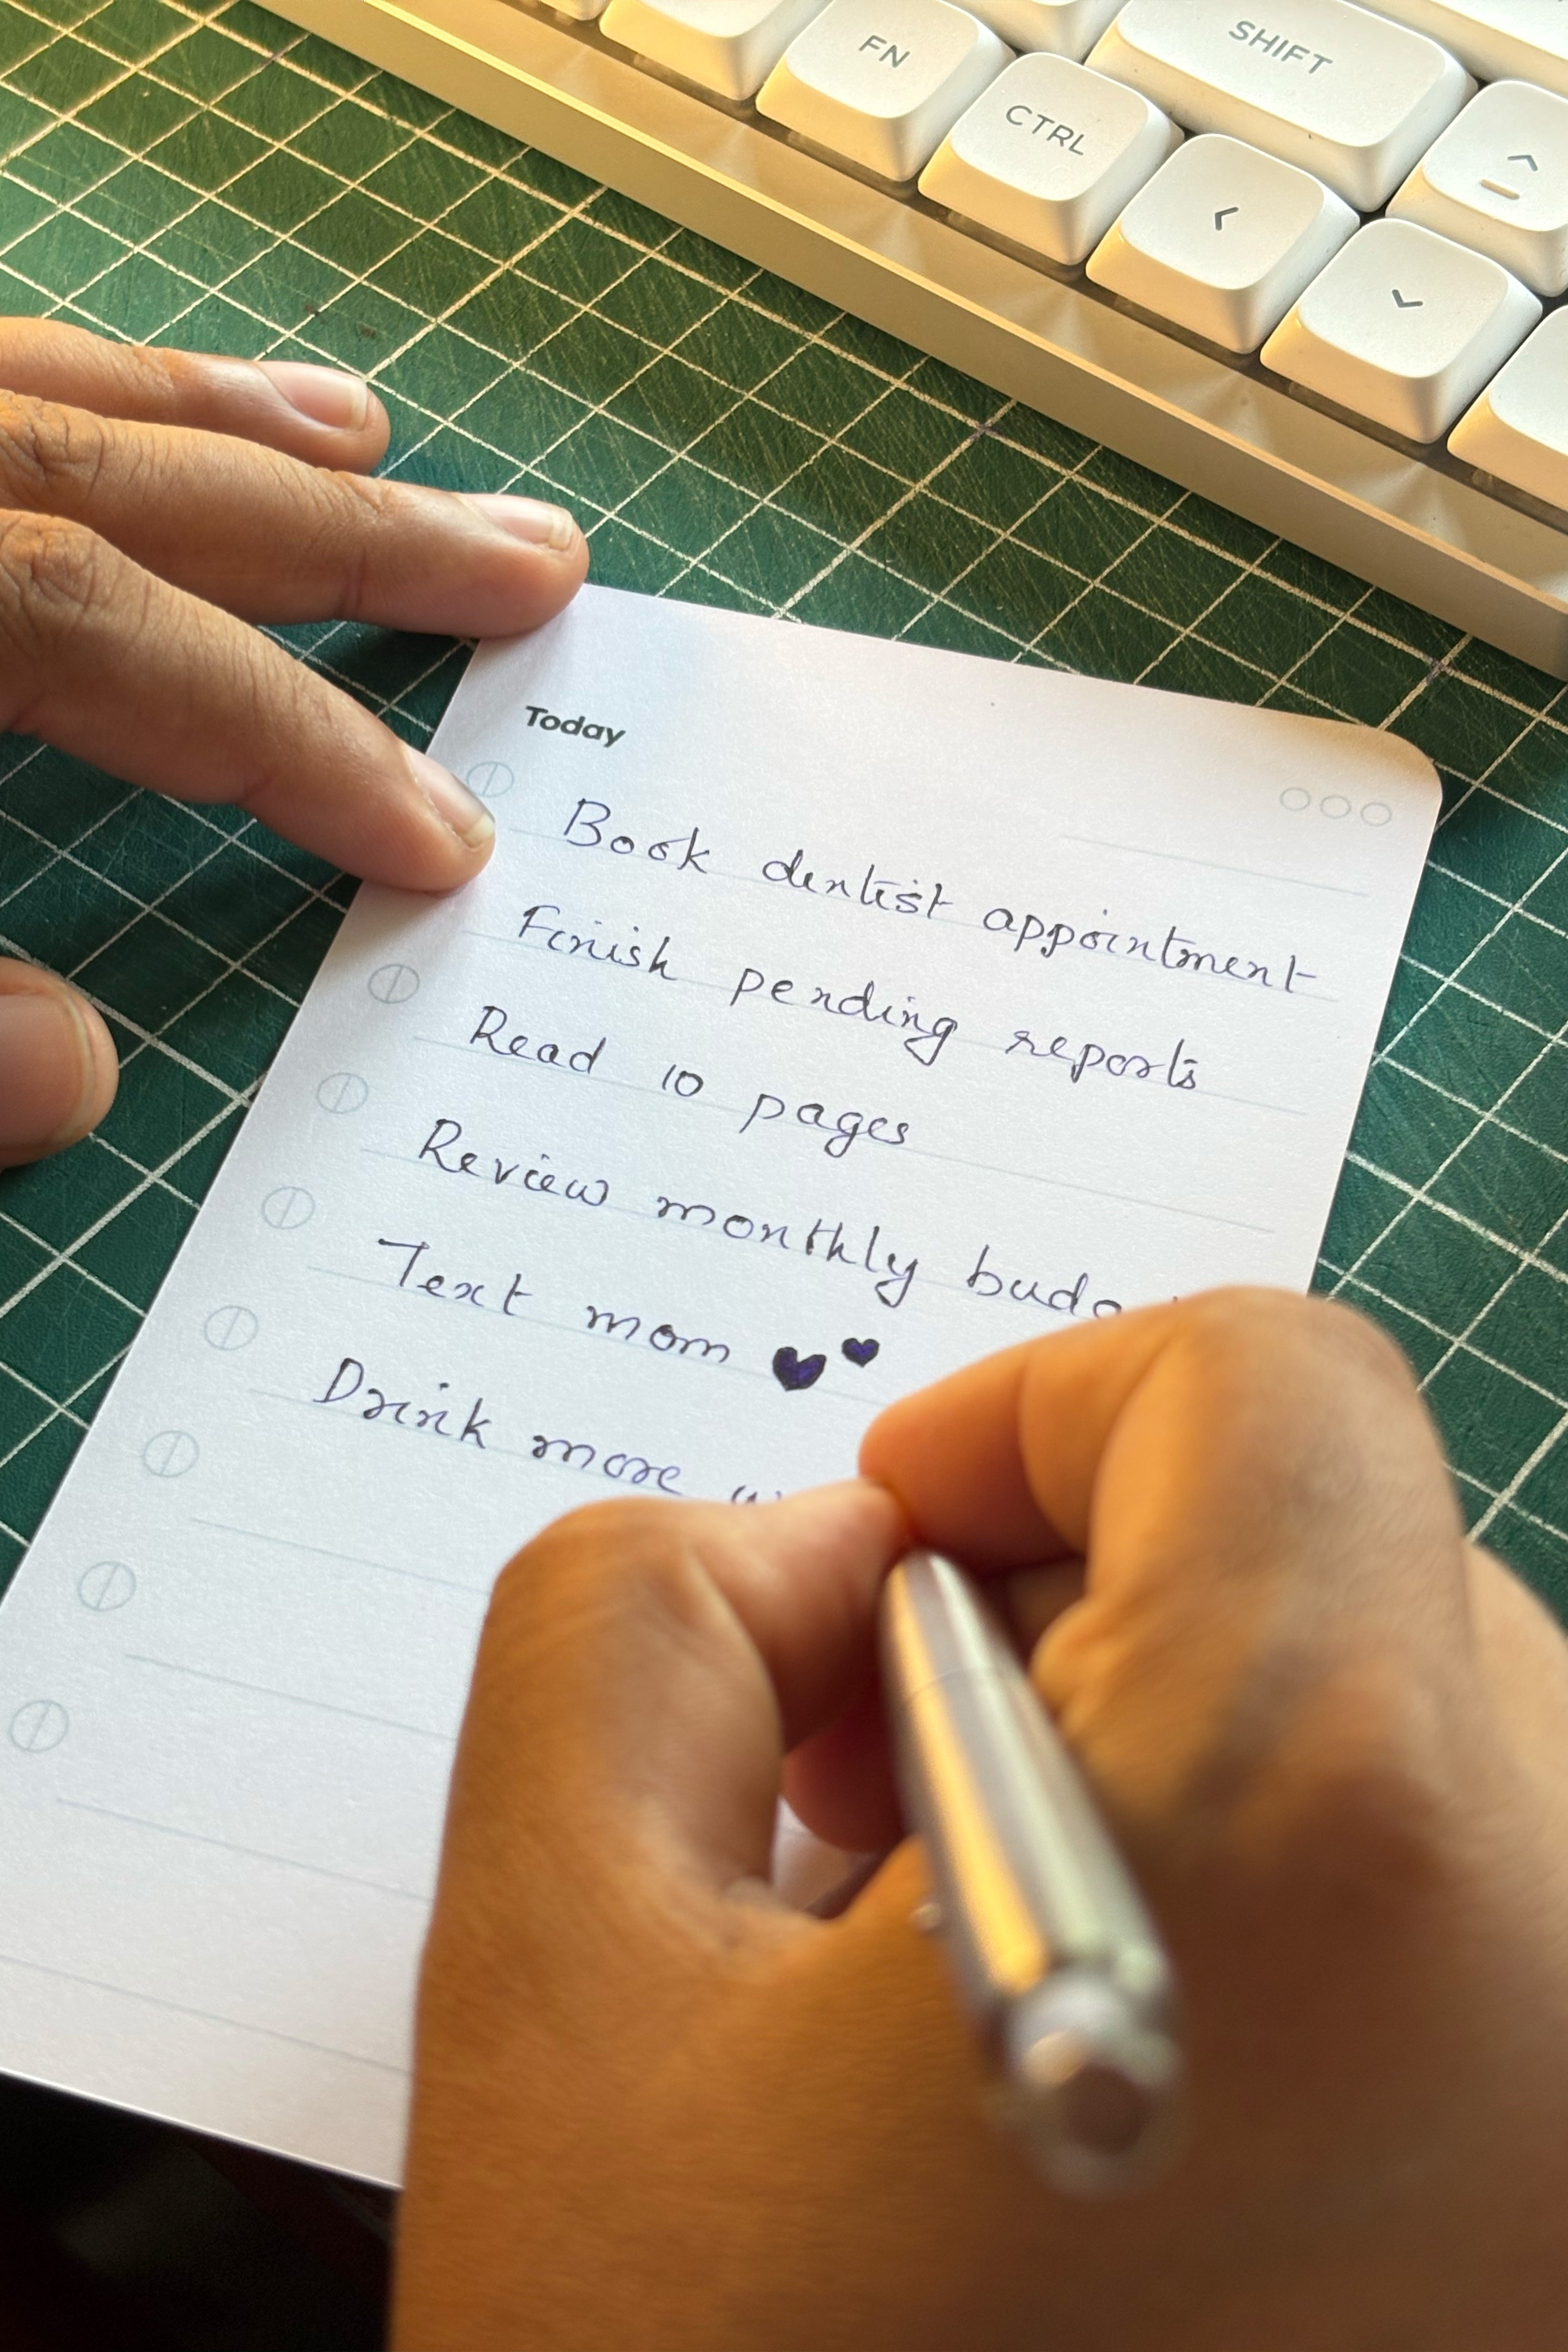 FN
SHIFT
CTRL
Today
Book dentist appointment
Finish pending reports
Read 10 pages
Review monthly
Text mom 🖤🖤
Drink more